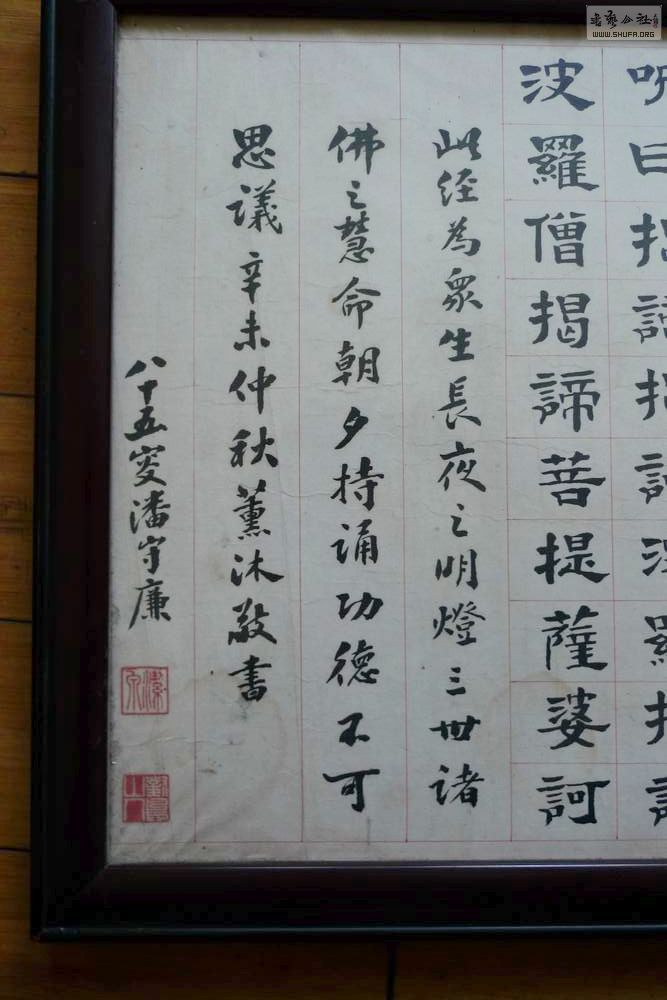 書藝公社
WWW.SHUFA.ORG
呪曰揭諦揭諦波羅揭諦
波羅僧揭諦菩提薩婆訶
此経為眾生長夜之明燈三世諸
佛之慧命朝夕持誦功德不可
思議辛未仲秋薰沐敬書
八十五叟潘守廉
潔泉